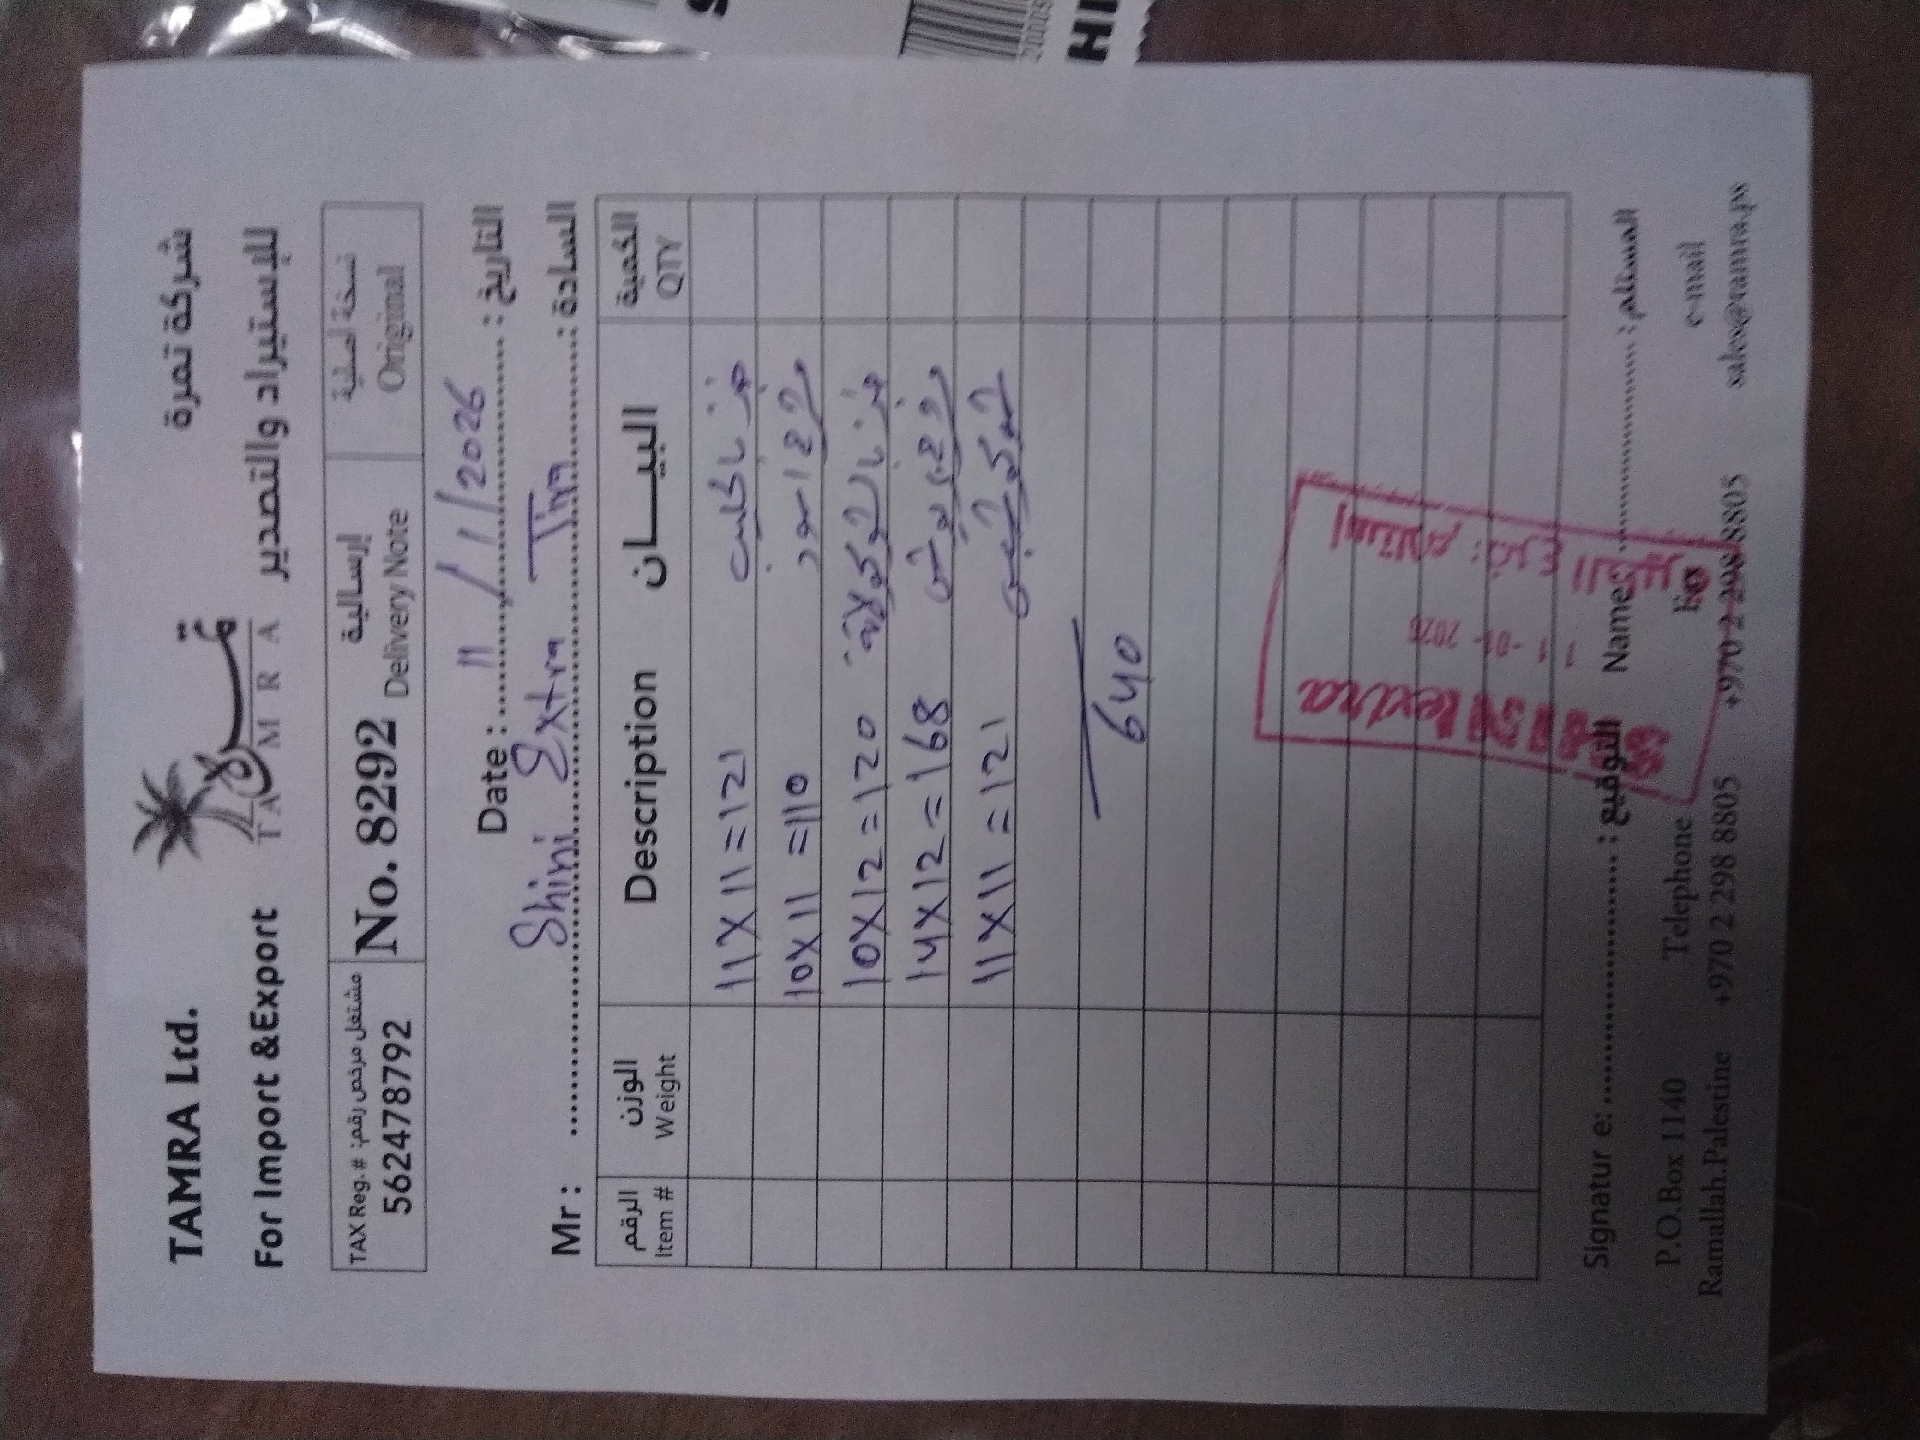 TAMRA Ltd.
شركة تمرة
For Import & Export
للإستيراد والتصدير
تمرة
TAMRA
TAX Reg.# مشتغل مرخص رقم:
562478792
No. 82292
إرسالية
Delivery Note
نسخة أصلية
Original
Date : 11/1/2026 التاريخ :
Mr : Shini Extra Tira السادة :
الرقم الوزن Description البيـــان الكمية
Item # Weight QTY
11X11=121
10X11=110
10X12=120
14X12=168
11X11=121
640
استلام
extra
Signatur e: التوقيع : Name المستلم :
P.O.Box 1140 Telephone Fax e-mail
Ramallah.Palestine +970 2 298 8805 +970 2 298 8805 sales@tamra.ps